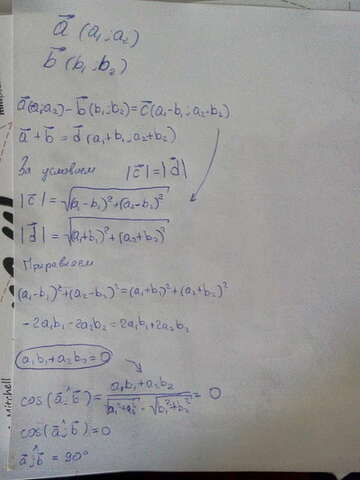 a⃗ (a₁; a₂)
b⃗ (b₁; b₂)
a⃗(a₁a₂) - b⃗(b₁; b₂) = c⃗(a₁-b₁; a₂-b₂)
a⃗ + b⃗ = d⃗ (a₁+b₁; a₂+b₂)
За условием |c⃗| = |d⃗|
|c⃗| = √(a₁-b₁)²+(a₂-b₂)²
|d⃗| = √(a₁+b₁)²+(a₂+b₂)²
Приравняем
(a₁-b₁)²+(a₂-b₂)²=(a₁+b₁)²+(a₂+b₂)²
-2a₁b₁-2a₂b₂=2a₁b₁+2a₂b₂
a₁b₁+a₂b₂=0
cos(a⃗;^b⃗) = a₁b₁+a₂b₂ / √a₁²+a₂² · √b₁²+b₂² = 0
cos(a⃗;^b⃗)=0
a⃗;^b⃗ = 90°
Mitchell